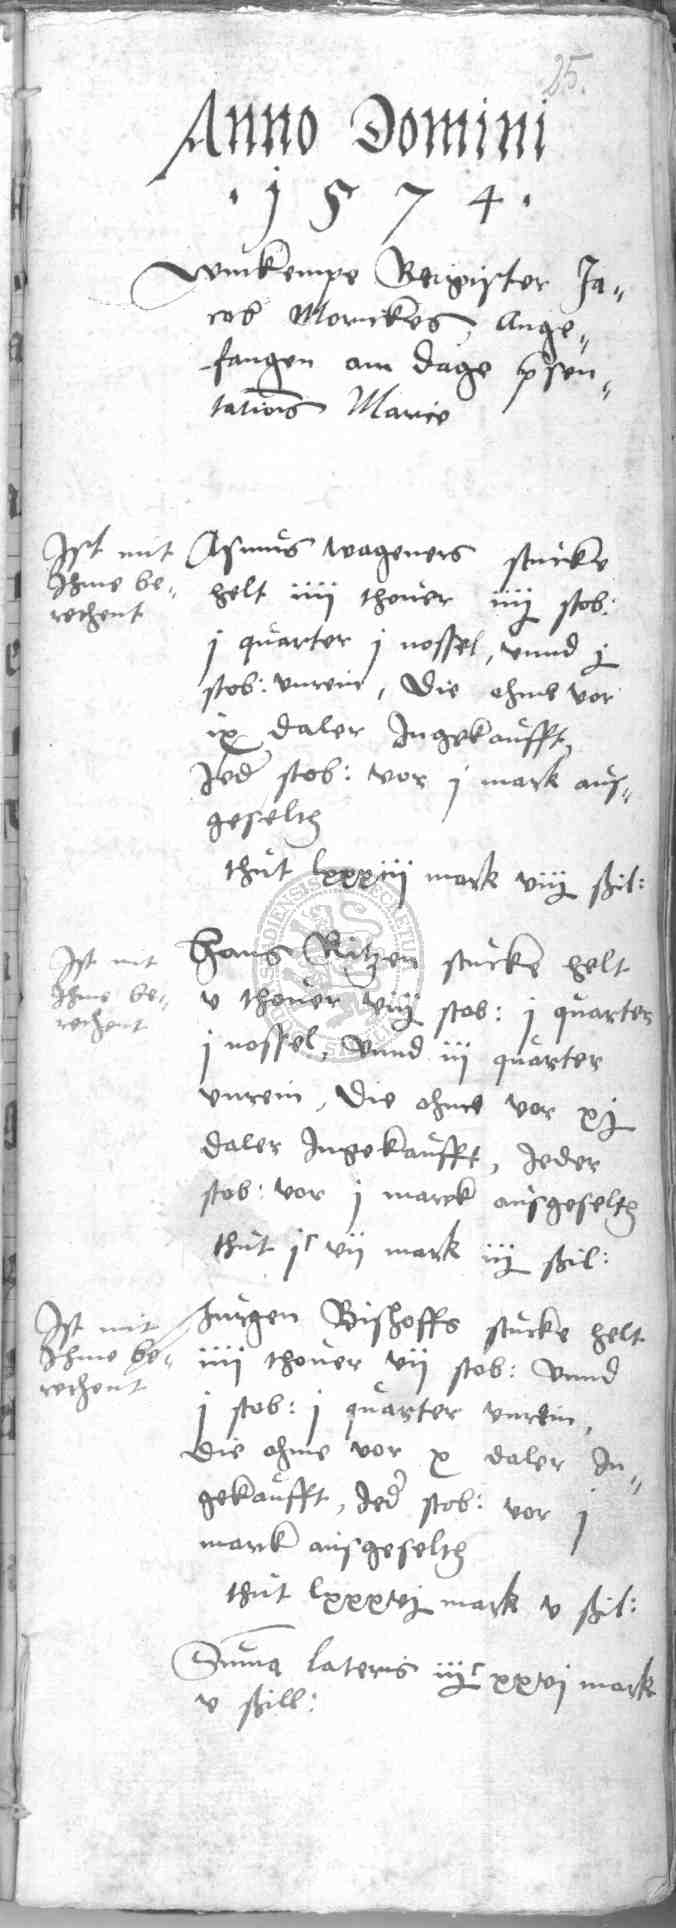 25.
Anno Domini
. 1 5 7 4 .
Winkempe Register Ja-
cob Mornickes, Ange-
fangen am dage pſen-
tationis Marie
Iſt mit
Ihme be-
rechent
Aſmus wageners ſtucke
helt iiii thouer iiij ſtob:
j quarter j noſſel, vnnd j
ſtob: vnrein, Die ohme vor
ix daler Ingekaufft,
Jed ſtob: vor j mark auſ-
geſelth
thut lxxxiiij mark viij ßil:
Iſt mit
Ihme be-
rechent
Hans Ritzen ſtucke helt
v thouer viij ſtob: j quarter
j noſſel, vnnd iii quarter
vnrein, Die ohme vor xj
daler Ingekaufft, Jeder
ſtob: vor j marck auſgeſelth
thut jc vij mark iij ßil:
Iſt mit
Ihme be-
rechent
Jurgen Biſhoffs ſtucke helt
iiii thouer vij ſtob: Vnnd
j ſtob: j quarter vnrein,
Die ohme vor x daler In-
gekaufft, Jed ſtob: vor j
marck auſgeſelth
thut lxxxvj mark v ßil:
Suma lateris iijc xxvj mark
v ßill: